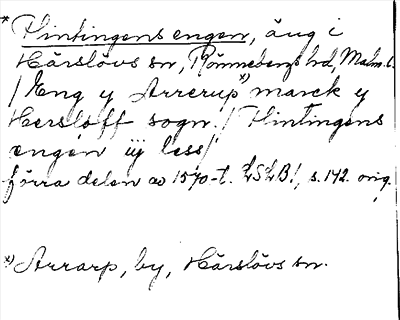 * Hintingens engen, äng i
Härslövs sn, Rönnebergs hd, Malm. l.
/ Eng y Arrerup *) marck y
Hersløff sogn. / Hintingens
engen iij less /
förra delen av 1570-t. LSLB!, s. 142. orig.
*) Arrarp, by, Härslövs sn.